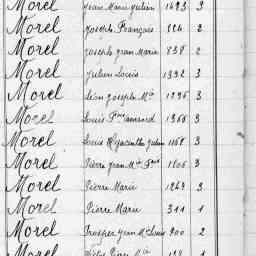 Morel Jean Marie Julien 1493 3
Morel Joseph François 824 2
Morel Joseph Jean Marie 838 2
Morel Julien Louis 1332 3
Morel Léon Joseph Mie 1296 3
Morel Louis 1366 3
Morel Louis Hyacinthe Julien 1168 3
Morel Pierre Jean Mie 1606 3
Morel Pierre Marie 1249 3
Morel Pierre Marie 311 1
Morel Prosper Jean Mie Louis 900 2
Morel Mie